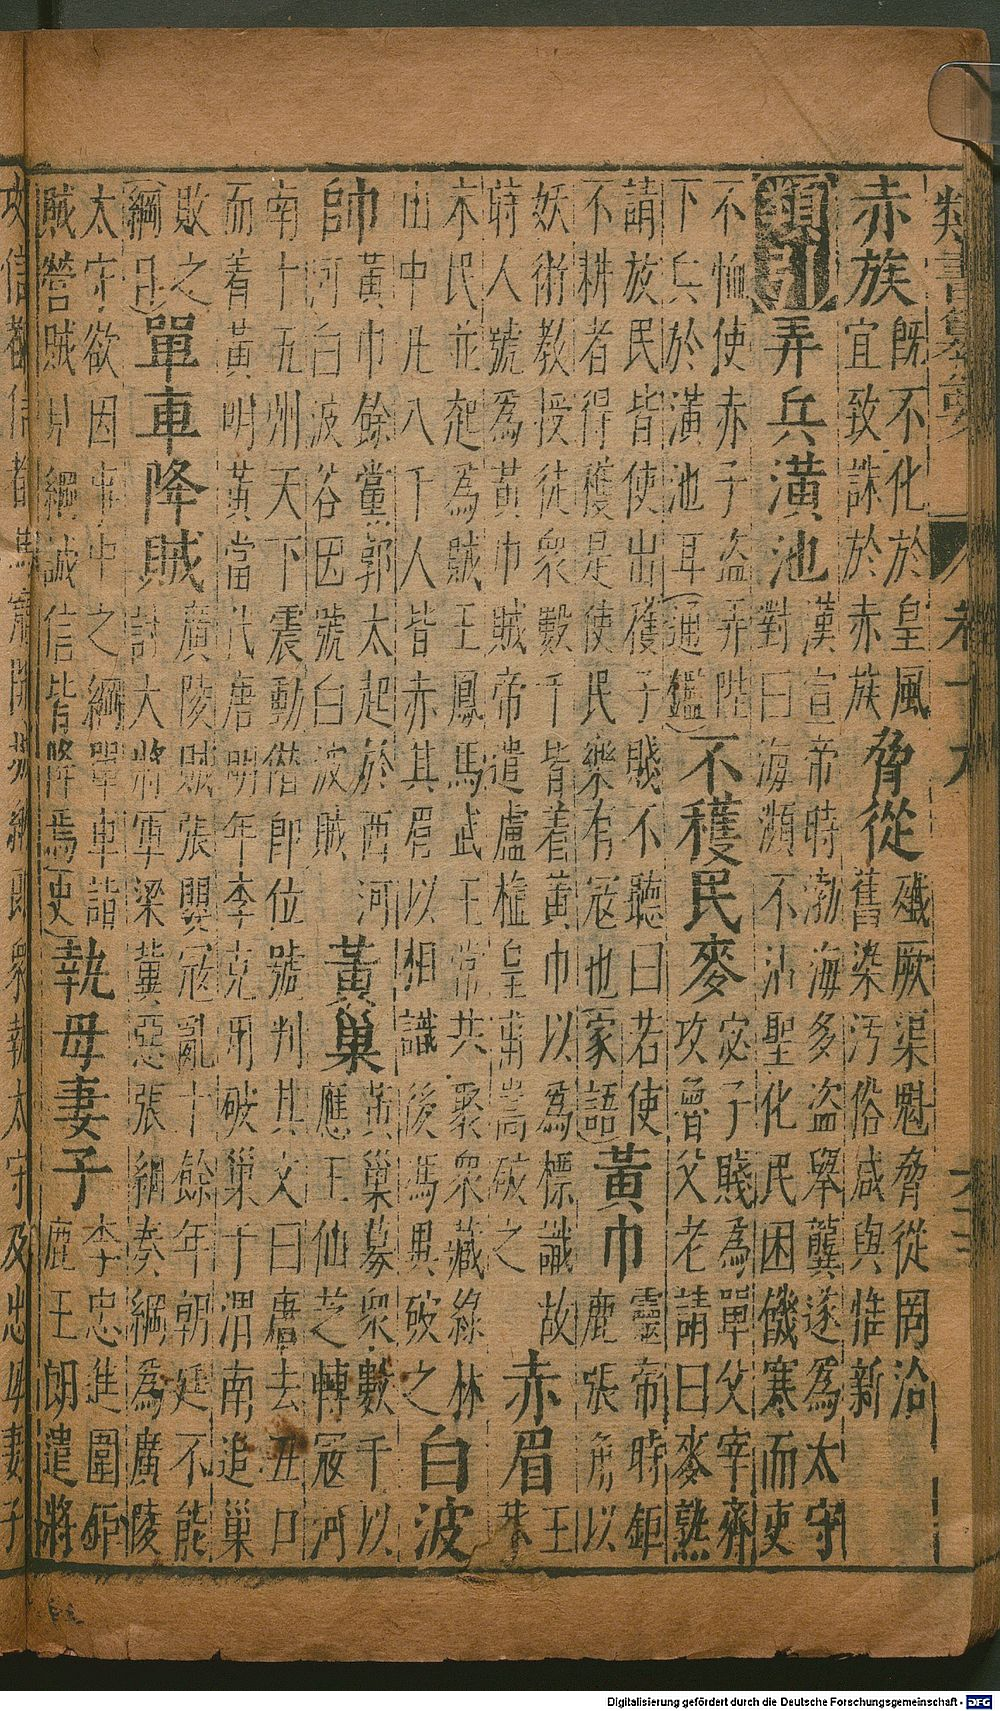 類書纂要 卷十六
赤族
既不化於皇風
宜致誅於赤族
脅從
殲厥渠魁脅從罔治
舊染汚俗咸與惟新
類引
弄兵潢池
漢宣帝時渤海多盜舉龔遂為太守
對曰海瀕不沾聖化民困饑寒而吏
不恤使赤子盜弄陛
下兵於潢池耳(通鑑)
不穫民麥
宓子賤為單父宰齊
攻魯父老請曰麥熟
請放民皆使出穫子賤不聽曰若使
不耕者得穫是使民樂有寇也(家語)
黃巾
靈帝時鉅
鹿張角以
妖術教授徒衆數千皆着黃巾以為標識故
時人號為黃巾賊帝遣盧植皇甫嵩破之
赤眉
王
莽
末民並起為賊王鳳馬武王常共聚衆藏綠林
山中凡八千人皆赤其眉以相識後馮異破之
白波
帥
黃巾餘黨郭太起於西河
河白波谷因號白波賊
黃巢
黃巢募衆數千以
應王仙芝轉寇河
南十五州天下震動僭即位號判其文曰唐去丑口
而着黃明黃當代唐明年李克用破巢于渭南追巢
敗之
綱目
單車降賊
廣陵賊張嬰寇亂十餘年朝廷不能
討大將軍梁冀惡張綱奏綱為廣陵
太守欲因事中之綱單車詣
賊營賊見綱誠信皆降焉(史)
執母妻子
李忠進圍鉅
鹿王朗遣將
攻信都信都馬寵開城納 衆執太守及忠母妻子
Digitalisierung gefördert durch die Deutsche Forschungsgemeinschaft - DFG